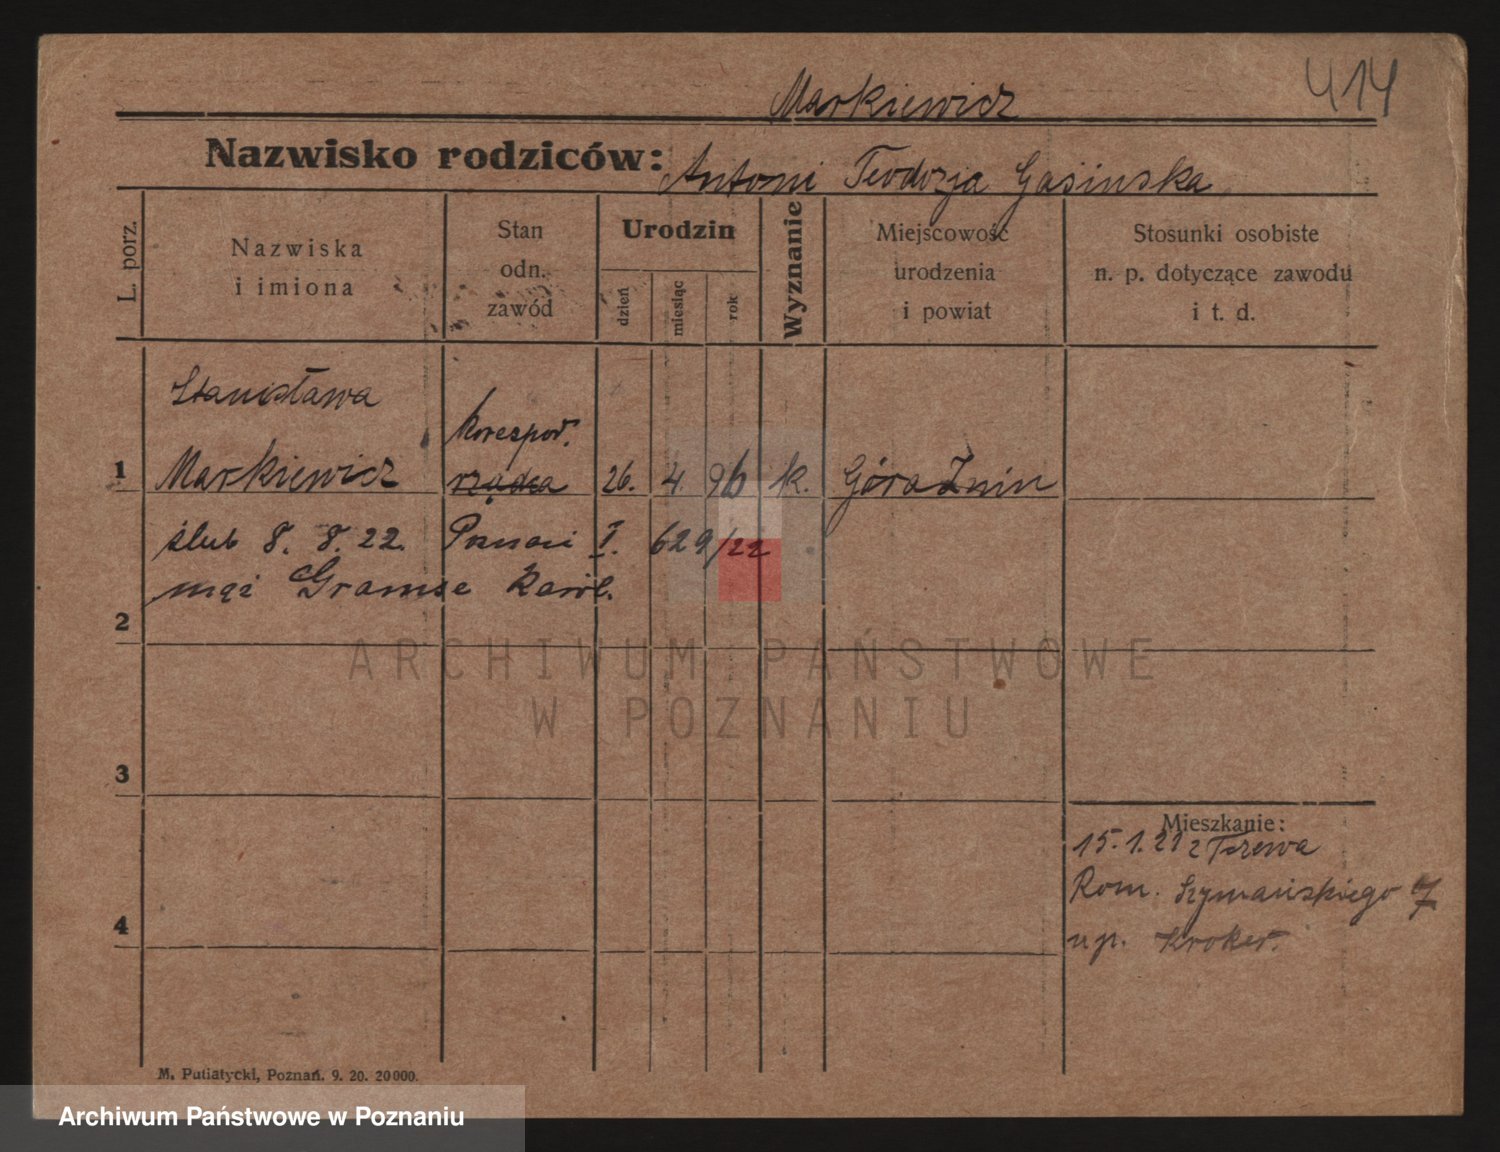 414
Markiewicz
Nazwisko rodziców: Antoni Teodozja Gąsinska
L. porz.
Nazwiska
i imiona
Stan
odn.
zawód
Urodzin
dzień
miesiąc
rok
Wyznanie
Miejscowość
urodzenia
i powiat
Stosunki osobiste
n. p. dotyczące zawodu
i t. d.
Stanisława
Korespod.
1 Markiewicz rządca 26. 4. 96 k. Góra Żnin
ślub 8. 8. 22. Poznań I. 629/22
mąż Gramse Karol.
2
3
4
Mieszkanie:
15. 1. 21 z
Rom. Szymańskiego 7
up. Kroker.
M. Putiatycki, Poznań. 9. 20. 20000.
ARCHIWUM PAŃSTWOWE
W POZNANIU
Archiwum Państwowe w Poznaniu